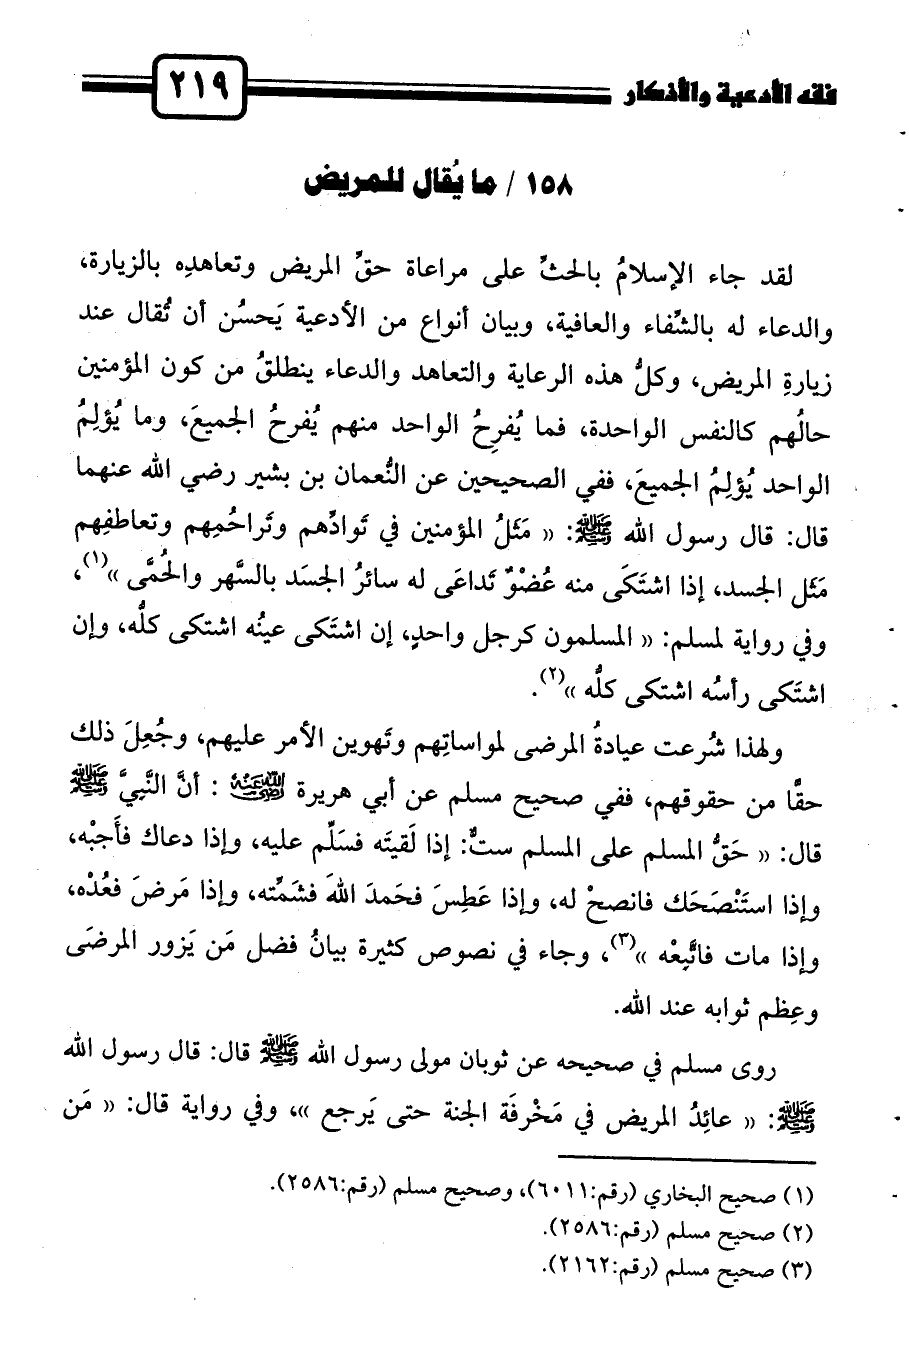 فقه الأدعية والأذكار
٢١٩
١٥٨ / ما يُقال للمريض
لقد جاء الإسلامُ بالحثِّ على مراعاة حقِّ المريض وتعاهدِه بالزيارة،
والدعاء له بالشِّفاء والعافية، وبيان أنواع من الأدعية يَحسُن أن تُقال عند
زيارةِ المريض، وكلُّ هذه الرعاية والتعاهد والدعاء ينطلقُ من كون المؤمنين
حالُهم كالنفس الواحدة، فما يُفرِحُ الواحد منهم يُفرحُ الجميعَ، وما يُؤلِمُ
الواحد يُؤلِمُ الجميعَ، ففي الصحيحين عن النُّعمان بن بشير رضي الله عنهما
قال: قال رسول الله ﷺ: « مَثَلُ المؤمنين في تَوادِّهم وتَراحُمِهم وتعاطفِهم
مَثَل الجسد، إذا اشتَكَى منه عُضْوٌ تَداعَى له سائرُ الجسَد بالسَّهر والحُمَّى »(١)،
وفي رواية لمسلم: « المسلمون كرجل واحدٍ، إن اشتَكى عينُه اشتكى كلُّه، وإن
اشتَكى رأسُه اشتكى كلُّه »(٢).
ولهذا شُرعت عيادةُ المرضى لمواساتِهم وتَهوين الأمر عليهم، وجُعِلَ ذلك
حقًّا من حقوقهم، ففي صحيح مسلم عن أبي هريرة رضي الله عنه : أنَّ النَّبِيَّ ﷺ
قال: « حَقُّ المسلم على المسلم ستٌّ: إذا لَقيتَه فسَلِّم عليه، وإذا دعاك فأَجبْه،
وإذا استَنْصَحَك فانصحْ له، وإذا عَطِسَ فحَمدَ اللهَ فشَمِّته، وإذا مَرضَ فعُدْه،
وإذا مات فاتَّبِعْه »(٣)، وجاء في نصوص كثيرة بيانُ فضل مَن يَزور المرضَى
وعِظم ثوابه عند الله.
روى مسلم في صحيحه عن ثوبان مولى رسول الله ﷺ قال: قال رسول الله
ﷺ: « عائِدُ المريض في مَخْرفَة الجنة حتى يَرجع »، وفي رواية قال: « مَن
(١) صحيح البخاري (رقم:٦٠١١)، وصحيح مسلم (رقم:٢٥٨٦).
(٢) صحيح مسلم (رقم:٢٥٨٦).
(٣) صحيح مسلم (رقم:٢١٦٢).